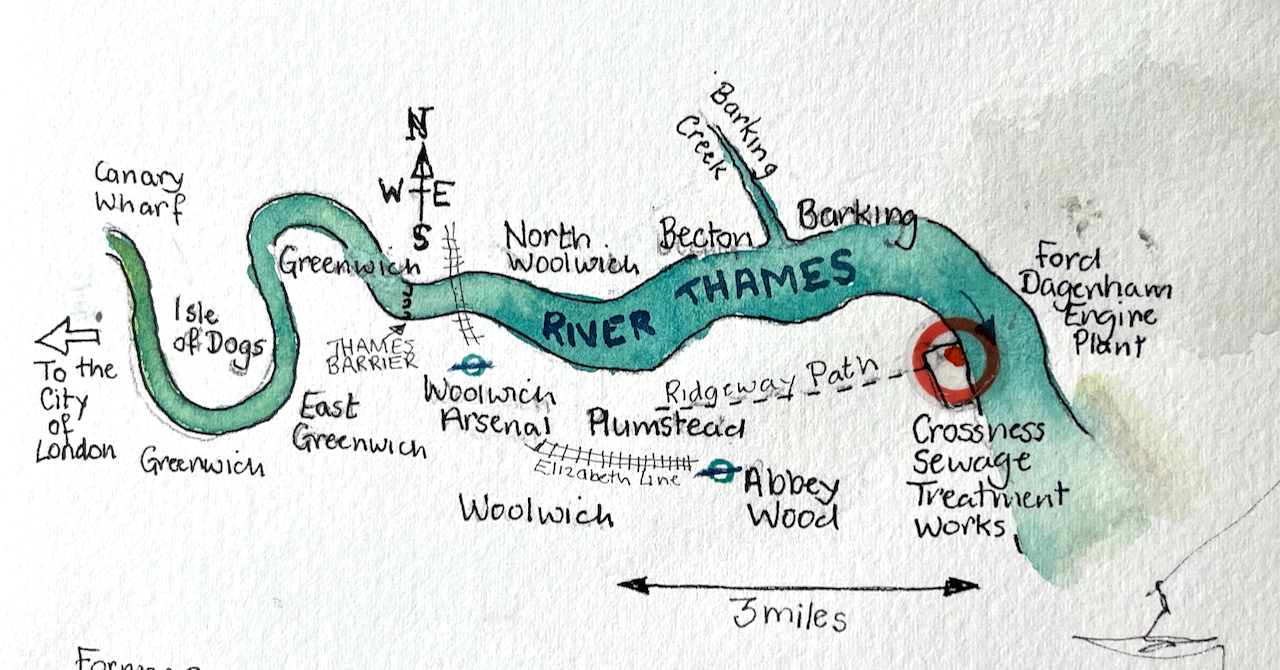 Canary
Wharf
N
W E
S
Barking
Creek
Greenwich
North
Woolwich
Becton
Barking
THAMES
RIVER
Ford
Dagenham
Engine
Plant
Isle
of Dogs
THAMES
BARRIER
To the
City
of
London
Greenwich
East
Greenwich
Woolwich
Arsenal
Ridgeway Path
Plumstead
Elizabeth Line
Abbey
Wood
Woolwich
Crossness
Sewage
Treatment
Works
3 miles